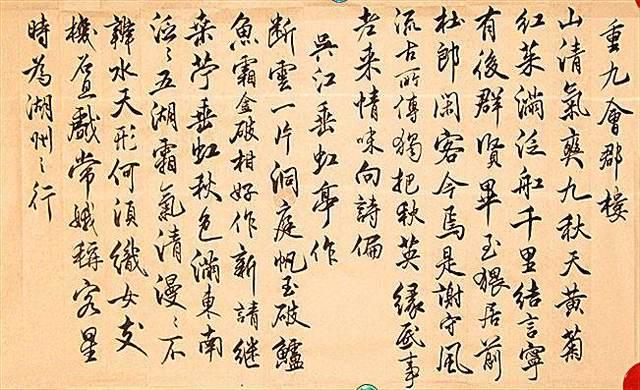 重九會郡樓
山清氣爽九秋天黃菊
紅茱滿泛船千里結言寧
有後群賢畢至猥居前
杜郎閑客今焉是謝守風
流古所傳獨把秋英緣底事
老來情味向詩偏
吳江垂虹亭作
斷雲一片洞庭帆玉破鱸
魚霜金破柑好作新詩繼
桑苧垂虹秋色滿東南
泛〻五湖霜氣清漫〻不
辨水天形何須織女支
機石且戲常娥稱客星
時為湖州之行